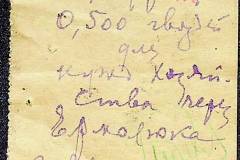 0,500 гвоздей
для
нужд хозяй-
ства через
Ермолюка